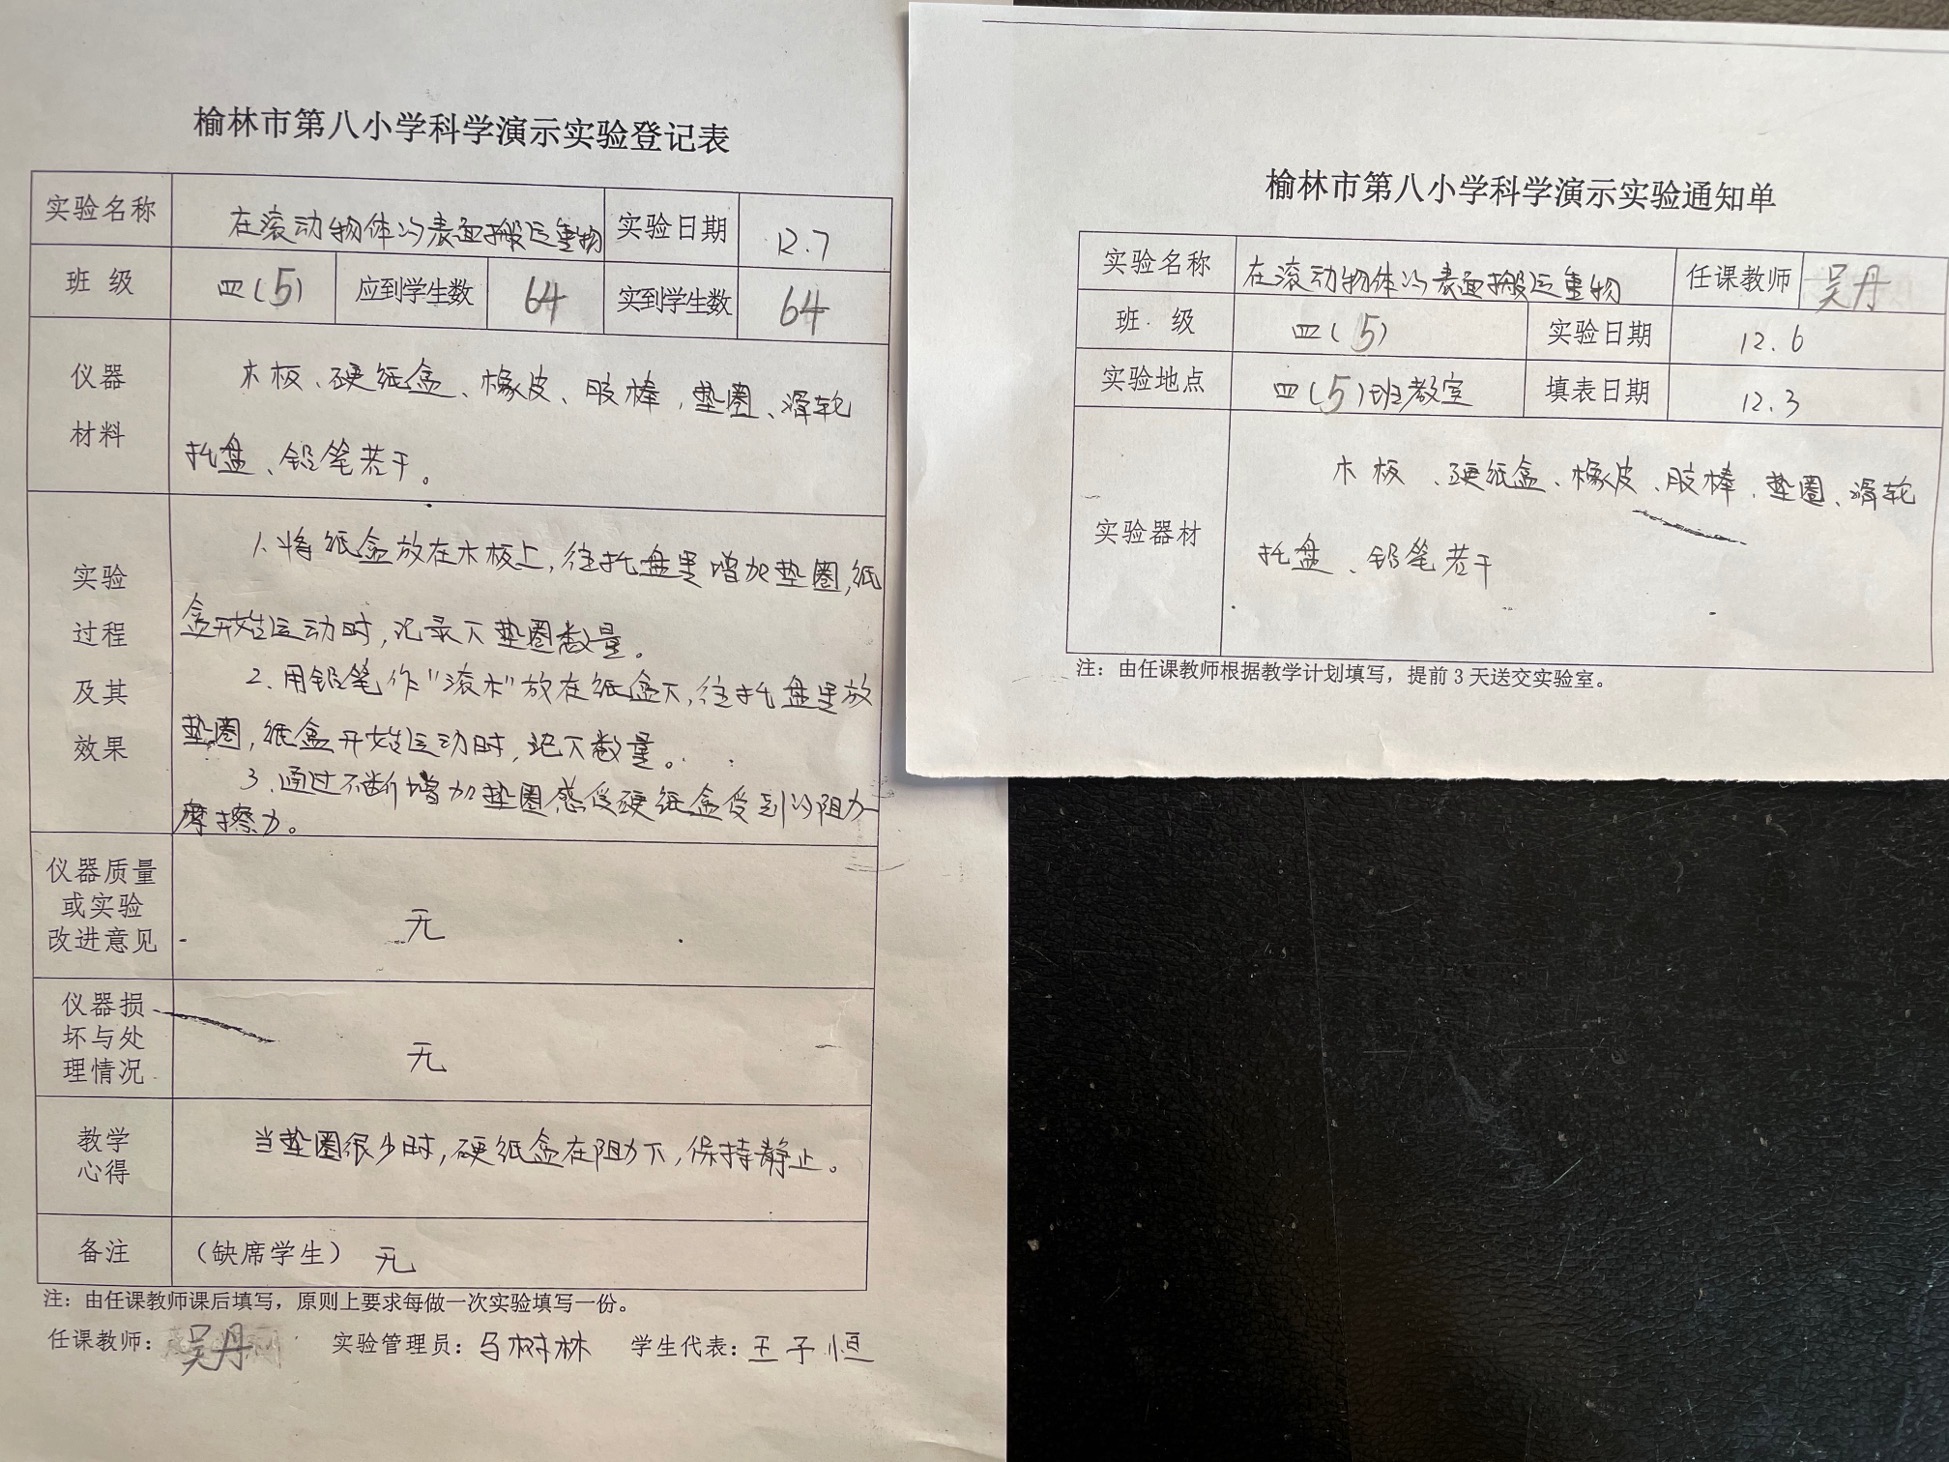 榆林市第八小学科学演示实验登记表
实验名称 在滚动物体的表面搬运重物 实验日期 12.7
班 级 四(5) 应到学生数 64 实到学生数 64
仪器 材料
木板、硬纸盒、橡皮、胶棒，垫圈、滑轮
托盘、铅笔若干。
实验 过程 及其 效果
1.将纸盒放在木板上，往托盘里增加垫圈,纸
盒开始运动时,记录下垫圈数量。
2.用铅笔作"滚木"放在纸盒下,往托盘里放
垫圈,纸盒开始运动时,记下数量。
3.通过不断增加垫圈感受硬纸盒受到的阻力—
摩擦力。
仪器质量
或实验
改进意见
无
仪器损
坏与处
理情况
无
教学
心得
当垫圈很少时,硬纸盒在阻力下,保持静止。
备注 （缺席学生） 无
注：由任课教师课后填写，原则上要求每做一次实验填写一份。
任课教师：吴丹 实验管理员：马树林 学生代表：王子恒
榆林市第八小学科学演示实验通知单
实验名称 在滚动物体的表面搬运重物 任课教师 吴丹
班 级 四(5) 实验日期 12.6
实验地点 四(5)班教室 填表日期 12.3
实验器材
木板、硬纸盒、橡皮、胶棒、垫圈、滑轮
托盘、铅笔若干
注：由任课教师根据教学计划填写，提前3天送交实验室。